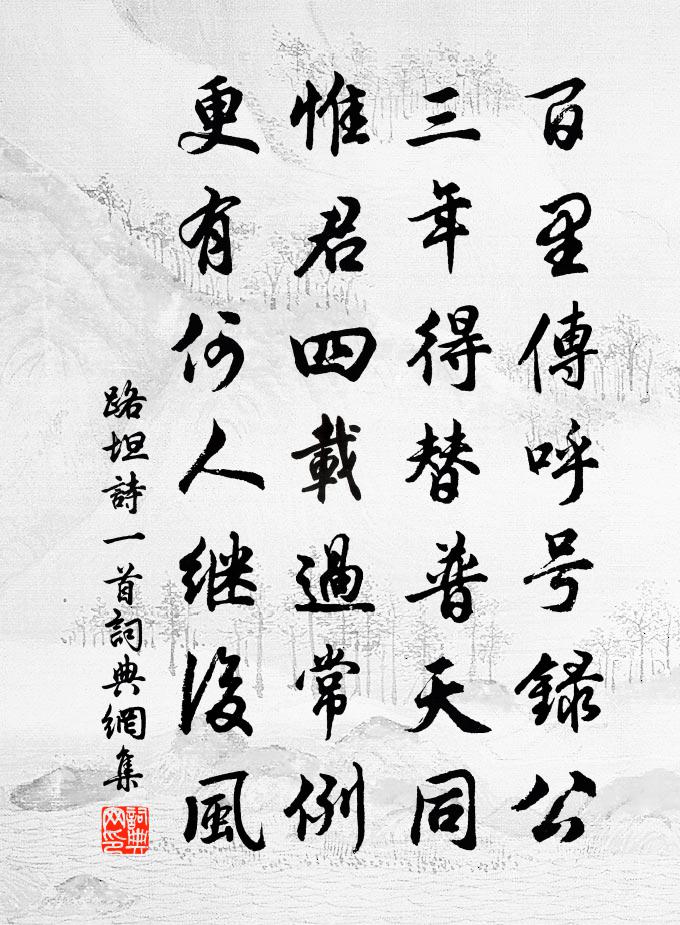 百里傳呼号録公
三年得替普天同
惟君四載過常例
更有何人继後風
路坦詩一首詞典網集
詞典网印